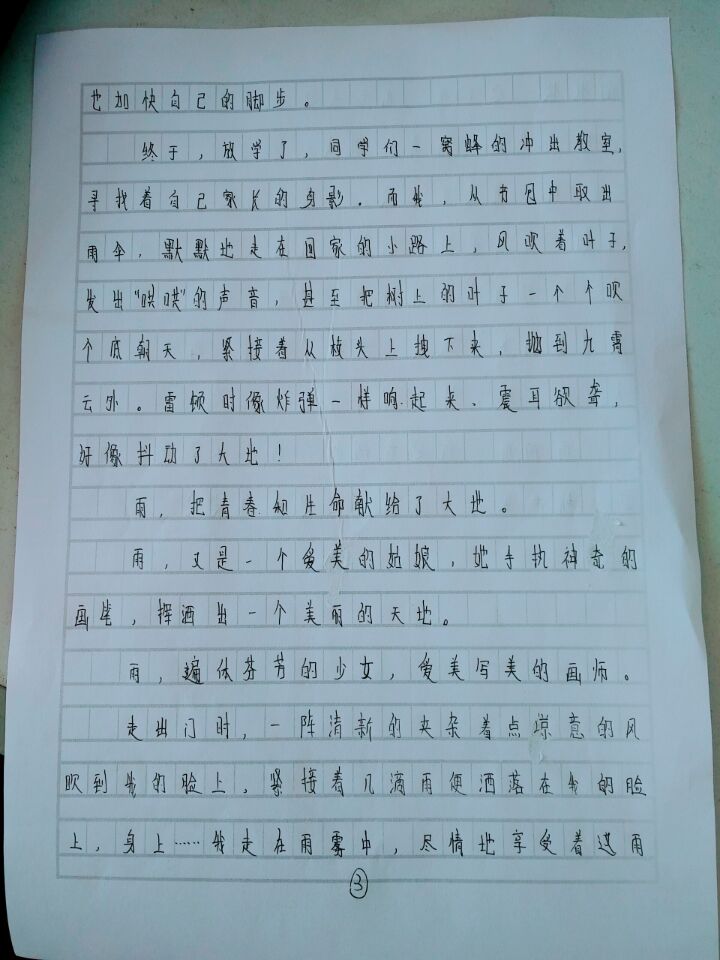 也加快自己的脚步。
终于，放学了，同学们一窝蜂的冲出教室，
寻找着自己家长的身影。而我，从书包中取出
雨伞，默默地走在回家的小路上，风吹着叶子，
发出“哄哄”的声音，甚至把树上的叶子一个个吹
个底朝天，紧接着从枝头上拽下来，抛到九霄
云外。雷顿时像炸弹一样响起来、震耳欲聋，
好像抖动了大地！
雨，把青春和生命献给了大地。
雨，又是一个爱美的姑娘，她手执神奇的
画笔，挥洒出一个美丽的天地。
雨，遍体芬芳的少女，爱美写美的画师。
走出门时，一阵清新的夹杂着点凉意的风
吹到我的脸上，紧接着几滴雨便洒落在我的脸
上，身上……我走在雨雾中，尽情地享受着这雨
3